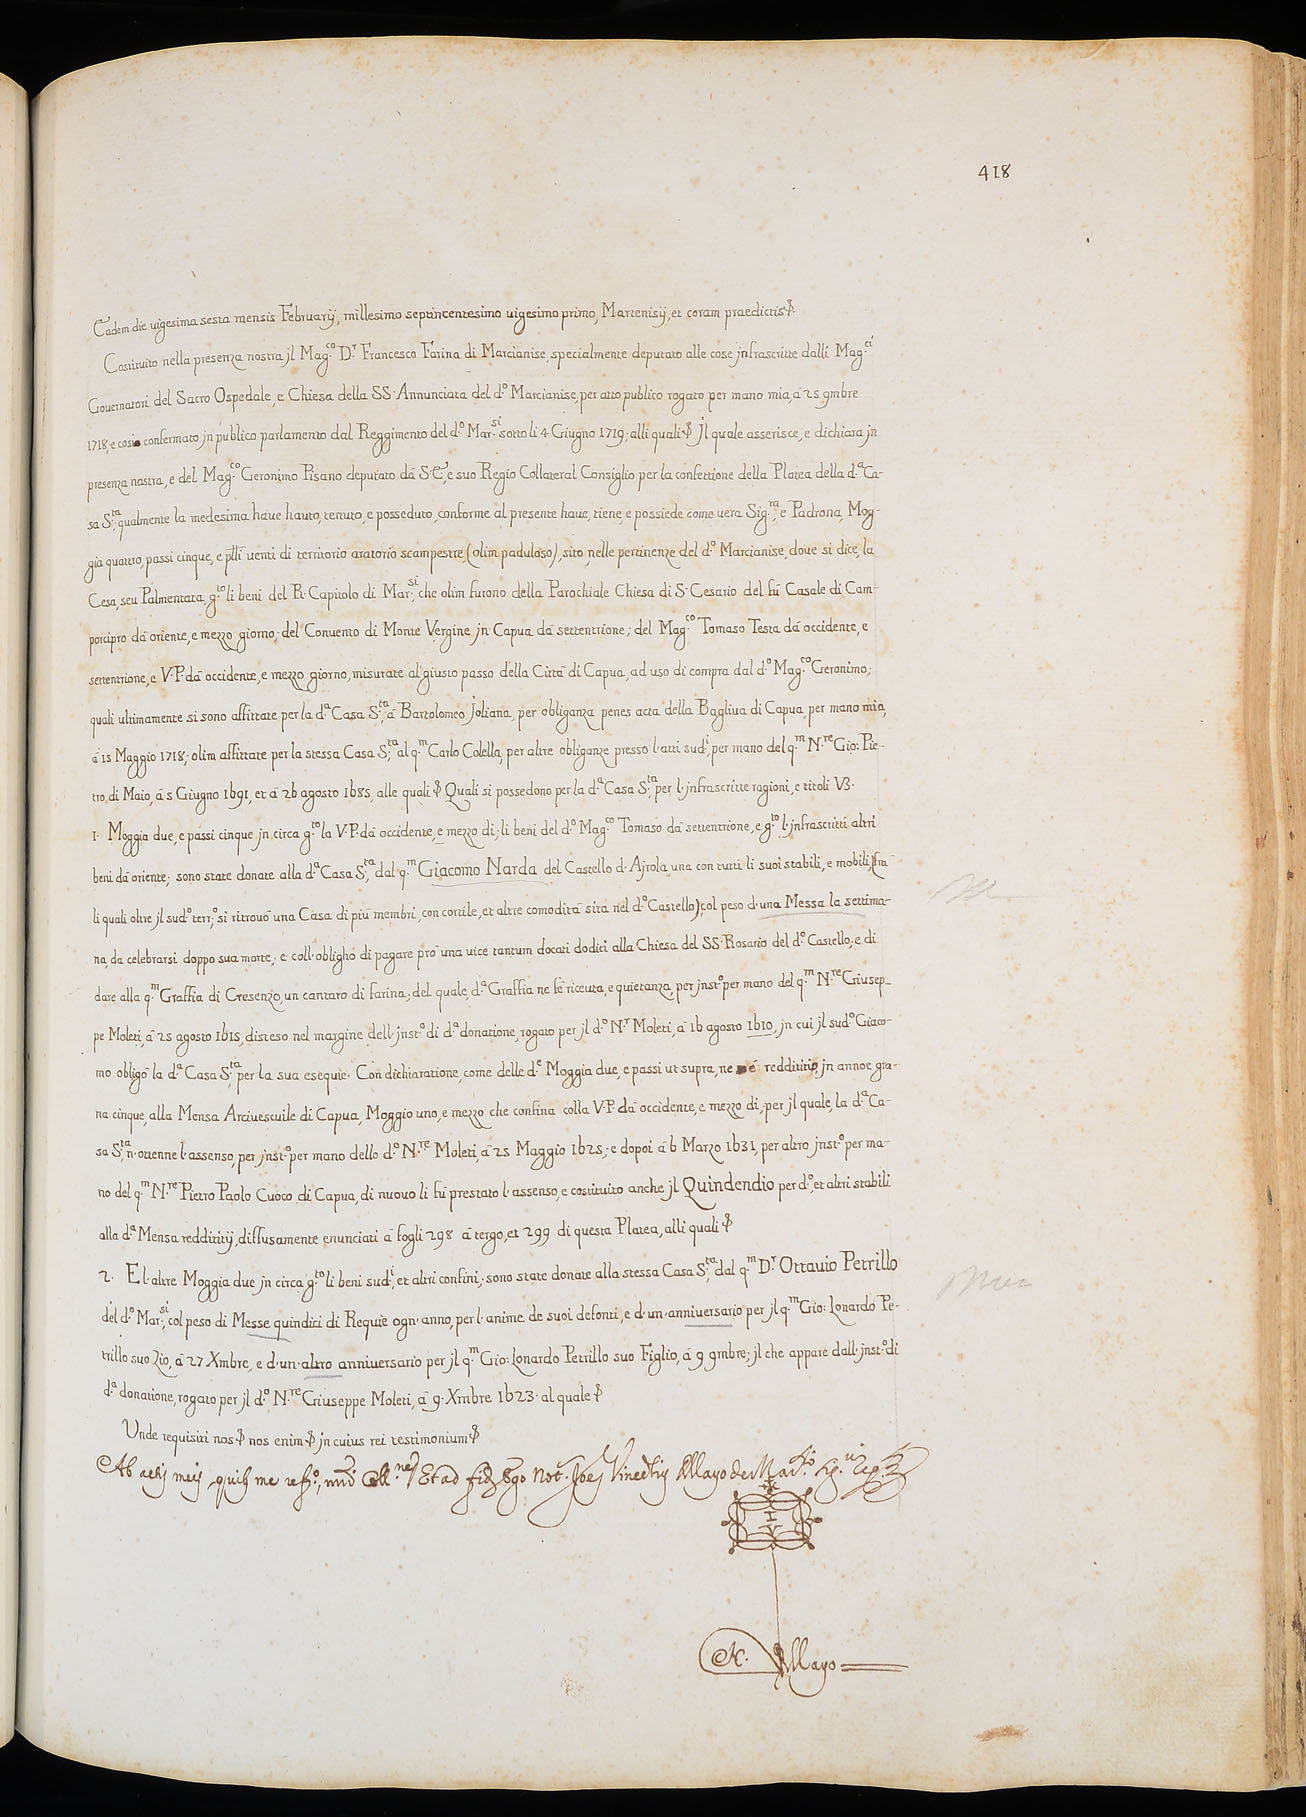 418
Eadem die uigesima sexta mensis Februarij, millesimo septincentesimo uigesimo primo, Martenisij, et coram praedictis
Costituito nella presenza nostra jl Mag.co D.r Francesco Farina di Marcianise, specialmente deputato alle cose jnfrascritte dalli Mag.ci
Gouernatori del Sacro Ospedale, e Chiesa della SS. Annunciata del d.o Marcianise, per atto publico rogato per mano mia, à 25 9mbre
1718, e cosi confermato jn publico parlamento dal Reggimento del d.o Mar.si sotto li 4 Giugno 1719; alli quali Jl quale asserisce, e dichiara jn
presenza nostra, e del Mag.co Geronimo Pisano deputato dà S.E., e suo Regio Collateral Consiglio per la confettione della Platea della d.a Ca-
sa S.ta, qualmente la medesima haue hauto, tenuto, e posseduto, conforme al presente haue, tiene, e possiede come uera Sig.ra, e Padrona, Mog-
gia quattro, passi cinque, e p̃lli uenti di territorio aratorio scampestre, (olim paduloso), sito nelle pertinenze del d.o Marcianise, doue si dice, la
Cesa, seu Palmentata, g.to li beni del R. Capitolo di Mar.si, che olim furono della Parochiale Chiesa di S. Cesario del fù Casale di Cam-
porcipro dà oriente, e mezzo giorno; del Conuento di Monte Vergine jn Capua dà settentrione; del Mag.co Tomaso Testa dà occidente, e
settentrione, e V.P. dà occidente, e mezzo giorno, misurate al giusto passo della Città di Capua, ad uso di compra dal d.o Mag.co Geronimo;
quali ultimamente si sono affittate per la d.a Casa S.ta, à Bartolomeo Joliano, per obliganza penes acta della Bagliua di Capua, per mano mia,
à 15 Maggio 1718; olim affittate per la stessa Casa S.ta al q.m Carlo Colella, per altre obliganze presso l'atti sud.i, per mano del q.m N.re Gio: Pie-
tro di Maio, à 5 Giugno 1691, et à 26 agosto 1685, alle quali Quali si possedono per la d.a Casa S.ta, per l'jnfrascritte ragioni, e titoli V3.
1. Moggia due, e passi cinque jn circa g.to la V.P. dà occidente, e mezzo di; li beni del d.o Mag.co Tomaso dà settentrione, e g.to l'jnfrascritti altri
beni dà oriente; sono state donate alla d.a Casa S.ta, dal q.m Giacomo Narda del Castello d'Ajrola, una con tutti li suoi stabili, e mobili, (fra
li quali oltre jl sud.o terr.o, si ritrouò una Casa di più membri, con cortile, et altre comodità sita nel d.o Castello), col peso d'una Messa la settima-
na, da celebrarsi doppo sua morte; e coll'obligho di pagare prò una uice tantum docati dodici alla Chiesa del SS. Rosario del d.o Castello, e di
dare alla q.m Graffia di Cresenzo, un cantaro di farina; del quale, d.a Graffia ne fè riceuta, e quietanza, per jnst.o per mano del q.m N.re Giusep-
pe Moleti, à 25 agosto 1615, disteso nel margine dell'jnst.o di d.a donatione, rogato per jl d.o N.r Moleti, à 16 agosto 1610, jn cui jl sud.o Giaco-
mo obligò la d.a Casa S.ta per la sua esequie. Con dichiaratione, come delle d.e Moggia due, e passi ut supra, ne è reddititio, jn annoe gra-
na cinque, alla Mensa Arciuescuile di Capua, Moggio uno, e mezzo che confina colla V.P. dà occidente, e mezzo di, per jl quale, la d.a Ca-
sa S.ta, n'ottenne l'assenso, per jnst.o per mano dello d.o N.re Moleti, à 25 Maggio 1625; e dopoi à 6 Marzo 1631, per altro jnst.o per ma-
no del q.m N.re Pietro Paolo Cuoco di Capua, di nuouo li fù prestato l'assenso, e costituito anche jl Quindendio per d.o, et altri stabili
alla d.a Mensa reddititij, diffusamente enunciati à fogli 298 à tergo, et 299 di questa Platea, alli quali
2. E l'altre Moggia due jn circa g.to li beni sud.i, et altri confini; sono state donate alla stessa Casa S.ta dal q.m D.r Ottauio Petrillo
del d.o Mar.si, col peso di Messe quindici di Requie ogn'anno, per l'anime de suoi defonti, e d'un anniuersario per jl q.m Gio: Lonardo Pe-
trillo suo Zio, à 27 Xmbre, e d'un altro anniuersario per jl q.m Gio: Lonardo Petrillo suo Figlio, à 9 9mbre; jl che appare dall'jnst.o di
d.a donatione, rogato per jl d.o N.re Giuseppe Moleti, à 9. Xmbre 1623. al quale
Unde requisiti nos nos enim jn cuius rei testimonium
Ab actis meis, Et ad fid. Ego Not. Joes Vincentius Mayo de Mar.
I V
N. Mayo